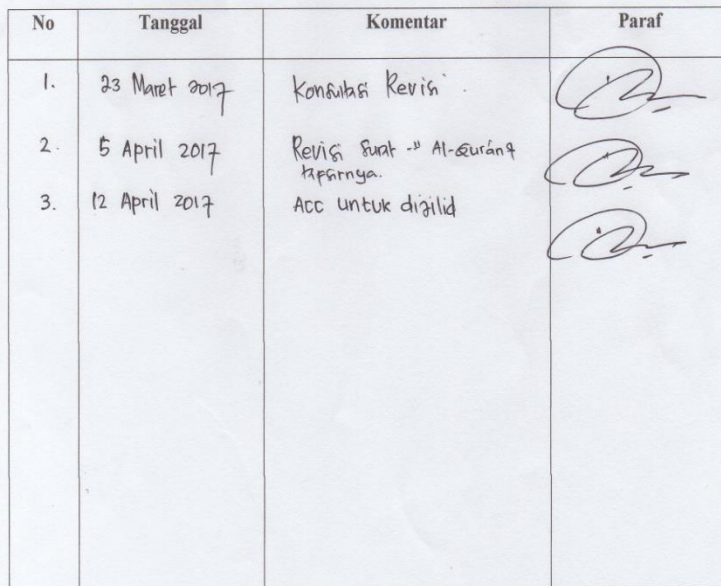 No Tanggal Komentar Paraf
1. 23 Maret 2017 Konsultasi Revisi
2. 5 April 2017 Revisi Surat -" Al-Qurán &
tafsirnya.
3. 12 April 2017 Acc untuk dijilid